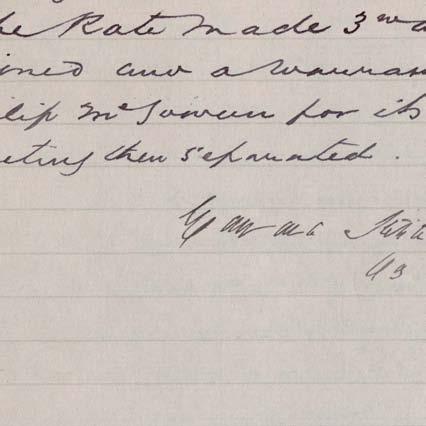 he Rate made 3rd
ined and a warran
ilip McGowen for its
eting then separated.